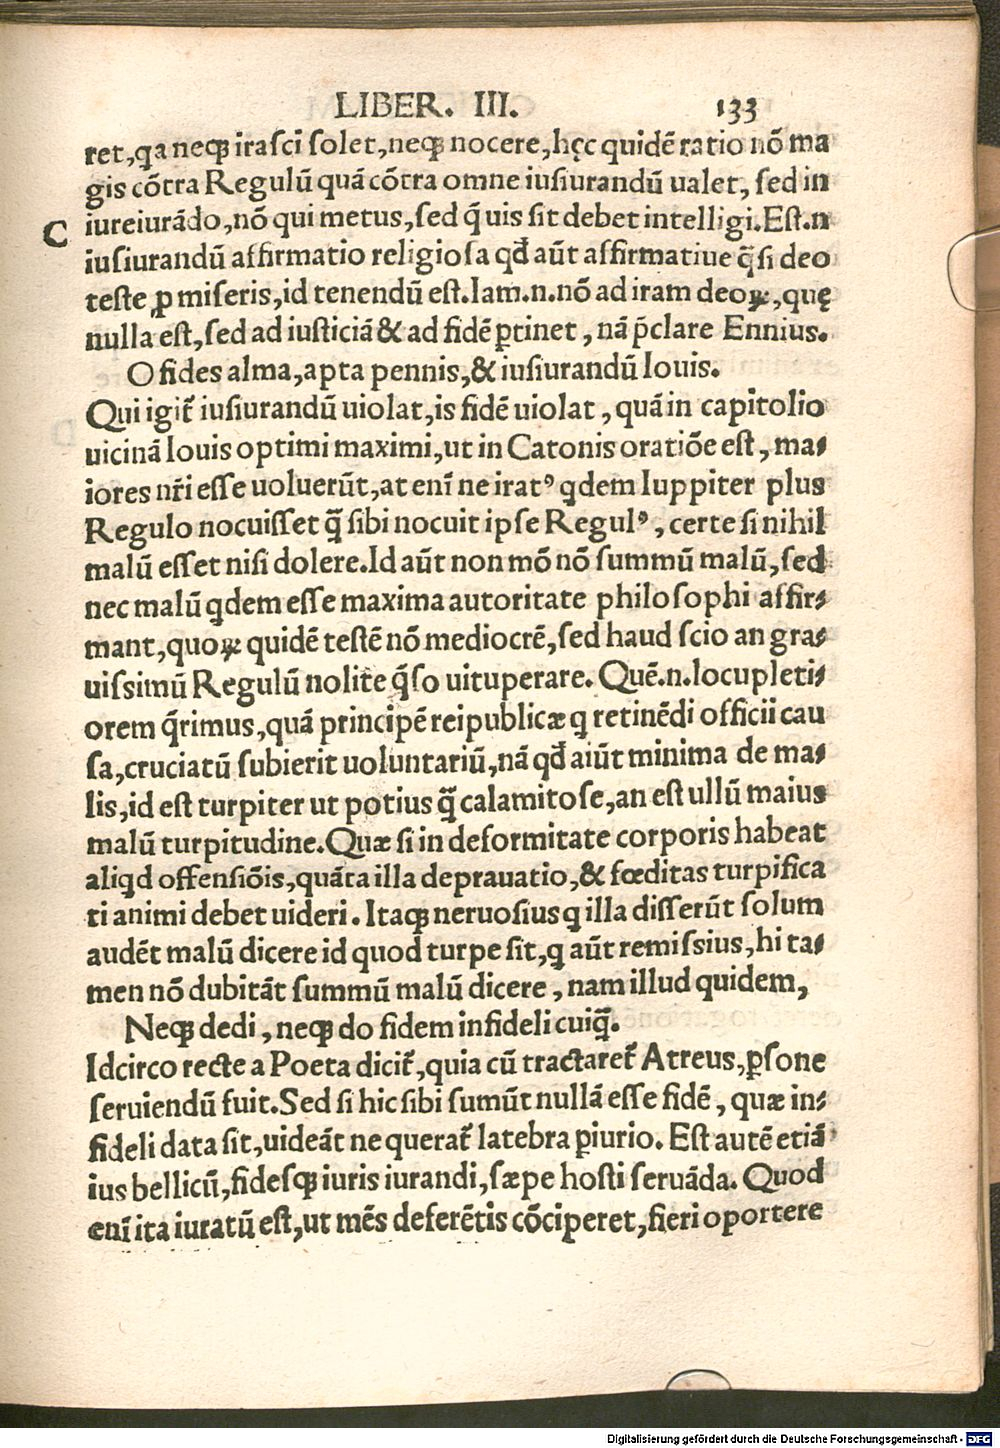 LIBER. III. 133
ret,qa neqꝫ irasci solet,neqꝫ nocere,hęc quidē ratio nō ma
gis cōtra Regulū quā cōtra omne iusiurandū ualet, sed in
C iureiurādo,nō qui metus,sed q̄ uis sit debet intelligi.Est.n
iusiurandū affirmatio religiosa qđ aūt affirmatiue q̄si deo
teste ꝓmiseris,id tenendū est.Iam.n.nō ad iram deoꝝ,quę
nulla est,sed ad iusticiā & ad fidē ꝑtinet , nā p̄clare Ennius.
O fides alma,apta pennis,& iusiurandū Iouis.
Qui igit̄ iusiurandū uiolat,is fidē uiolat , quā in capitolio
uicinā Iouis optimi maximi,ut in Catonis oratiōe est , ma⸗
iores nr̄i esse uoluerūt,at enī ne iratꝰ qdem Iuppiter plus
Regulo nocuisset q̄ sibi nocuit ipse Regulꝰ , certe si nihil
malū esset nisi dolere.Id aūt non mō nō summū malū, sed
nec malū qdem esse maxima autoritate philosophi affir⸗
mant,quoꝝ quidē testē nō mediocrē,sed haud scio an gra⸗
uissimū Regulū nolite q̄so uituperare. Quē.n.locupleti⸗
orem q̄rimus,quā principē reipublicæ q retinēdi officii cau
sa,cruciatū subierit uoluntariū,nā qđ aiūt minima de ma⸗
lis,id est turpiter ut potius q̄ calamitose,an est ullū maius
malū turpitudine.Quæ si in deformitate corporis habeat
aliqd offensiōis,quāta illa deprauatio,& fœditas turpifica
ti animi debet uideri . Itaqꝫ neruosius q illa disserūt solum
audēt malū dicere id quod turpe sit,q aūt remissius,hi ta⸗
men nō dubitāt summū malū dicere , nam illud quidem,
Neqꝫ dedi , neqꝫ do fidem infideli cuiq̄.
Idcirco recte a Poeta dicit̄ ,quia cū tractaret̄ Atreus,ꝑsone
seruiendū fuit.Sed si hic sibi sumūt nullā esse fidē , quæ in⸗
fideli data sit,uideāt ne querat̄ latebra ꝑiurio. Est autē etiā
ius bellicū,fidesqꝫ iuris iurandi,sæpe hosti seruāda. Quod
enī ita iuratū est,ut mēs deferētis cōciperet,fieri oportere
Digitalisierung gefördert durch die Deutsche Forschungsgemeinschaft - DFG